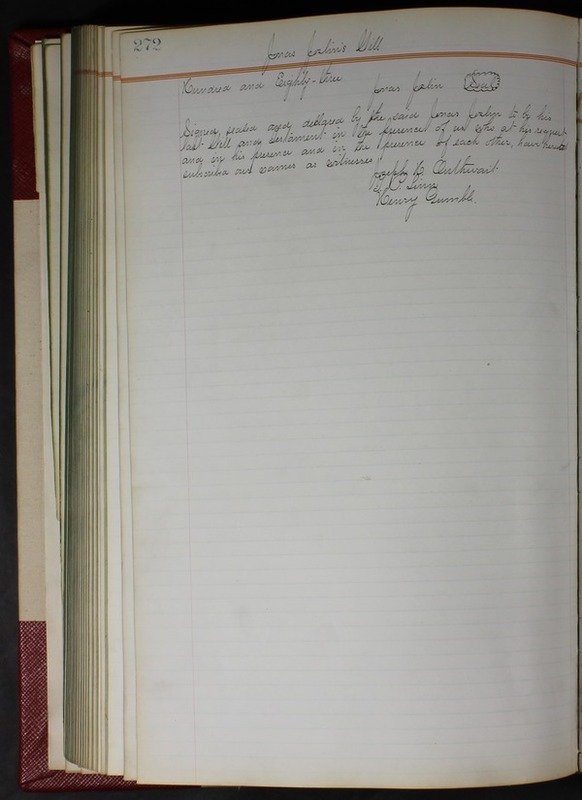 272
Jonas Joslin's Will
Hundred and Eighty-three
Jonas Joslin Seal
Signed, sealed and declared by the said Jonas Joslin to be his
last Will and Testament in the presence of us who at his request
and in his presence and in the presence of each other, have hereto
subscribed our names as witnesses
Joseph B. Outhwait
Linn
Henry Gumble.